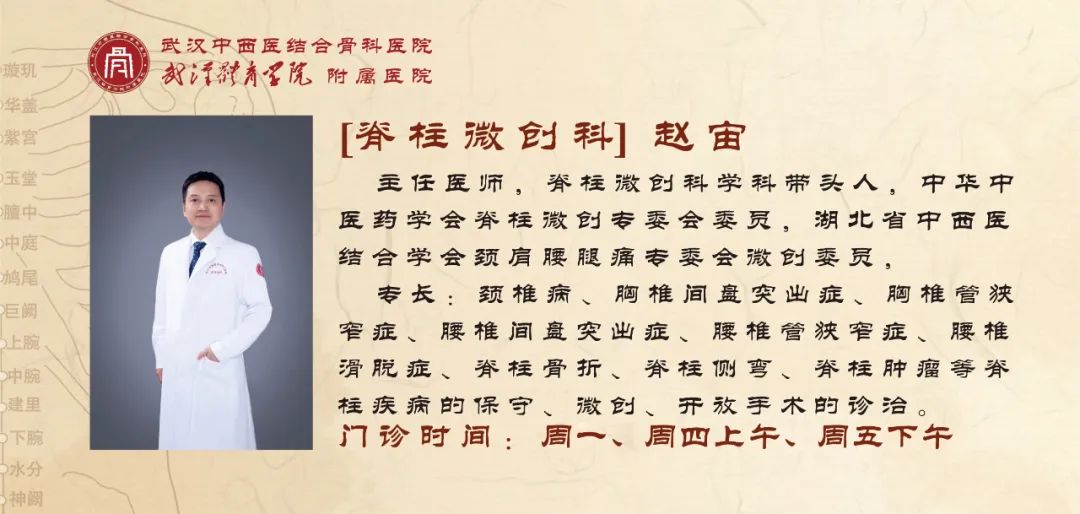 武汉中西医结合骨科医院
武汉体育学院 附属医院
[脊柱微创科] 赵宙
主任医师，脊柱微创科学科带头人，中华中
医药学会脊柱微创专委会委员，湖北省中西医
结合学会颈肩腰腿痛专委会微创委员，
专长：颈椎病、胸椎间盘突出症、胸椎管狭
窄症、腰椎间盘突出症、腰椎管狭窄症、腰椎
滑脱症、脊柱骨折、脊柱侧弯、脊柱肿瘤等脊
柱疾病的保守、微创、开放手术的诊治。
门诊时间：周一、周四上午、周五下午
璇玑
华盖
紫宫
玉堂
膻中
中庭
鸠尾
巨阙
上脘
中脘
建里
下脘
水分
神阙